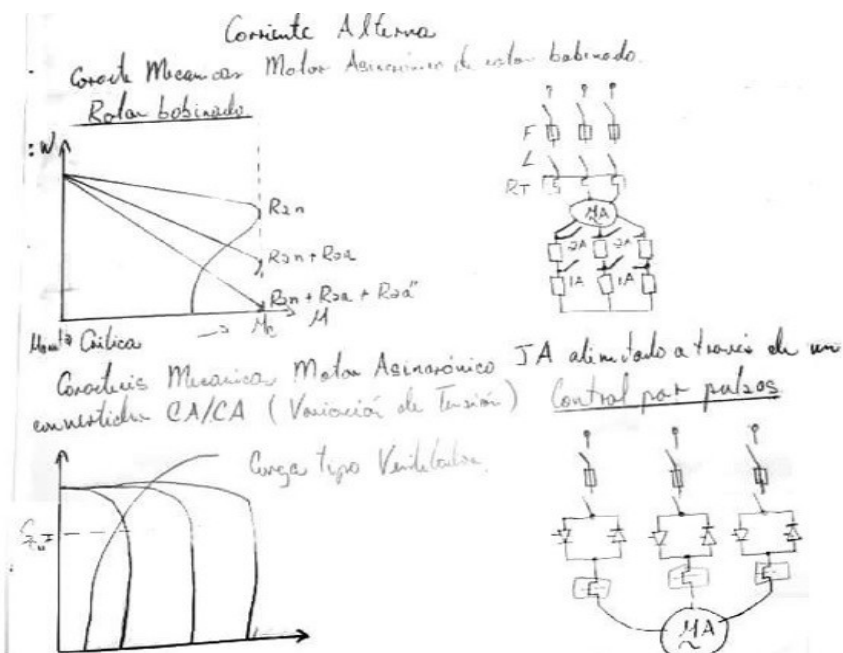 Corriente Alterna
Caracte Mecanicas Motor Asincrónico de rotor bobinado.
Rotor bobinado
W
R2n
R2n + R2a
R2n + R2a + R2a"
M
F
L
RT
MA
2A 2A
1A 1A
Crítica
Mecanica Motor Asincrónico JA alimentado a través de un
convertidor CA/CA (Variación de Tensión) Control por pulsos
Carga tipo Ventilador
MA